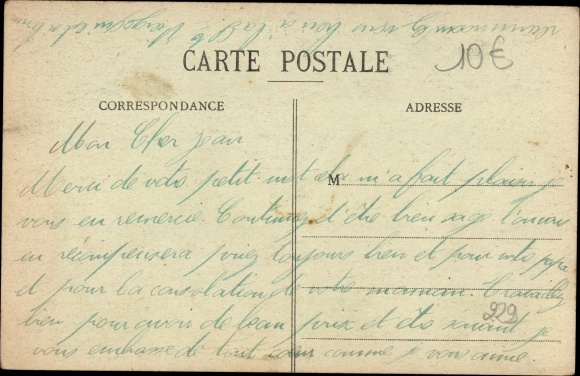 CARTE POSTALE
10€
CORRESPONDANCE
ADRESSE
Mon Cher Jean
Merci de votre petit mot cher m'a fait plaisir je
M
vous en remercie Continuez d'être bien sage l'
en récompensera priez toujours bien et pour votre papa
et pour la consolation de votre maman. travaillez
bien pour avoir de beau prix et être savant je
229
vous embrasse de tout cœur comme je vous aime.